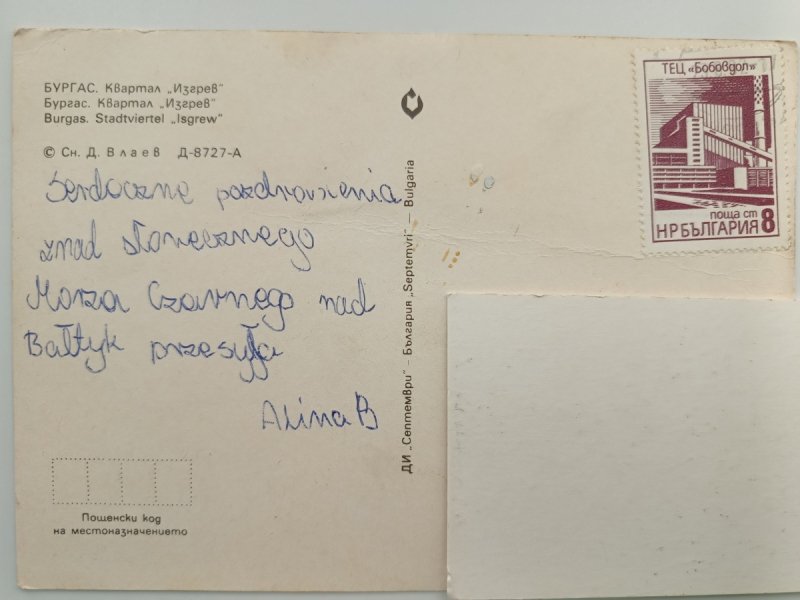 БУРГАС. Квартал „Изгрев“
Бургас. Квартал „Изгрев“
Burgas. Stadtviertel „Isgrew“
© Сн. Д. Влаев Д-8727-А
Serdeczne pozdrowienia
znad słonecznego
Morza Czarnego nad
Bałtyk przesyła
Alina B
Пощенски код
на местоназначението
ДИ „Септември“ – България „Septemvri“ – Bulgaria
ТЕЦ «Бобовдол»
поща ст
НР БЪЛГАРИЯ 8